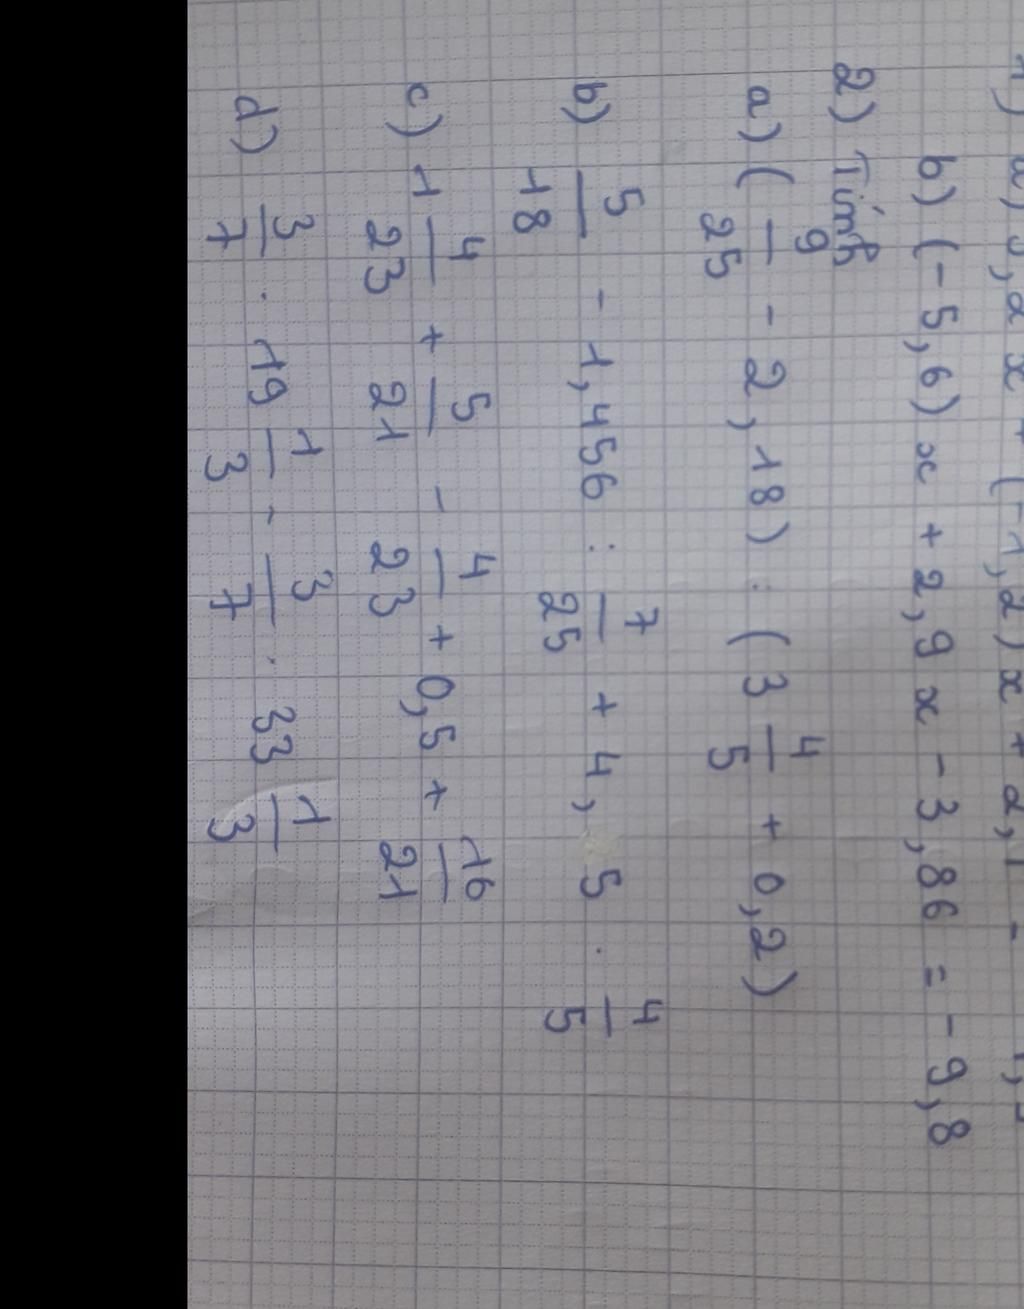 b) (-5,6)x + 2,9x - 3,86 = -9,8
2) Tính
a) (9/25 - 2,18) : (3 4/5 + 0,2)
b) 5/18 - 1,456 : 7/25 + 4,5 . 4/5
c) 1 4/23 + 5/21 - 4/23 + 0,5 + 16/21
d) 3/7 . 19 1/3 - 3/7 . 33 1/3